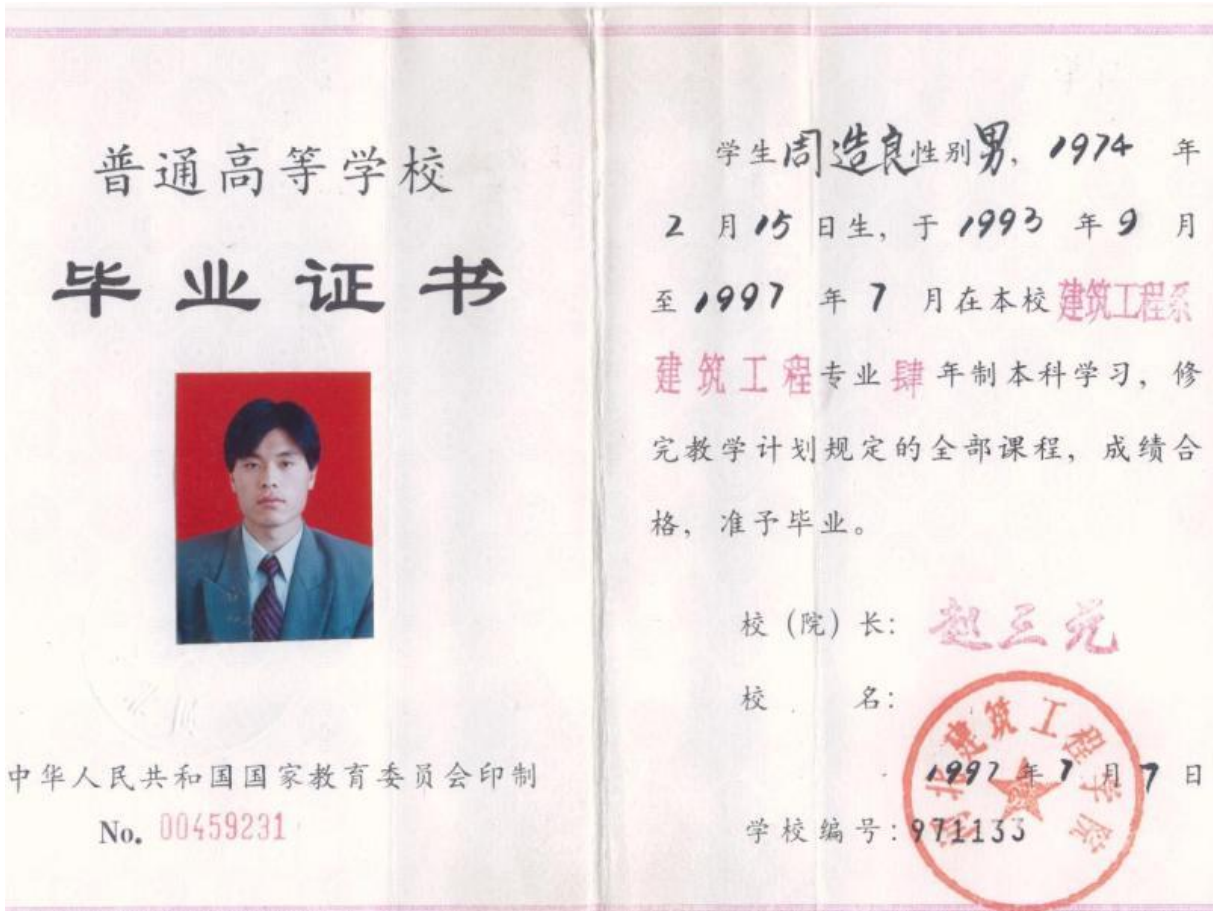 普通高等学校
毕业证书
中华人民共和国国家教育委员会印制
No. 00459231
学生周造良性别男，1974 年
2 月 15 日生，于 1993 年 9 月
至 1997 年 7 月在本校建筑工程系
建筑工程专业肆年制本科学习，修
完教学计划规定的全部课程，成绩合
格，准予毕业。
校（院）长：赵三元
校 名：
建筑工程学院
1997 年 7 月 7 日
学校编号：971133